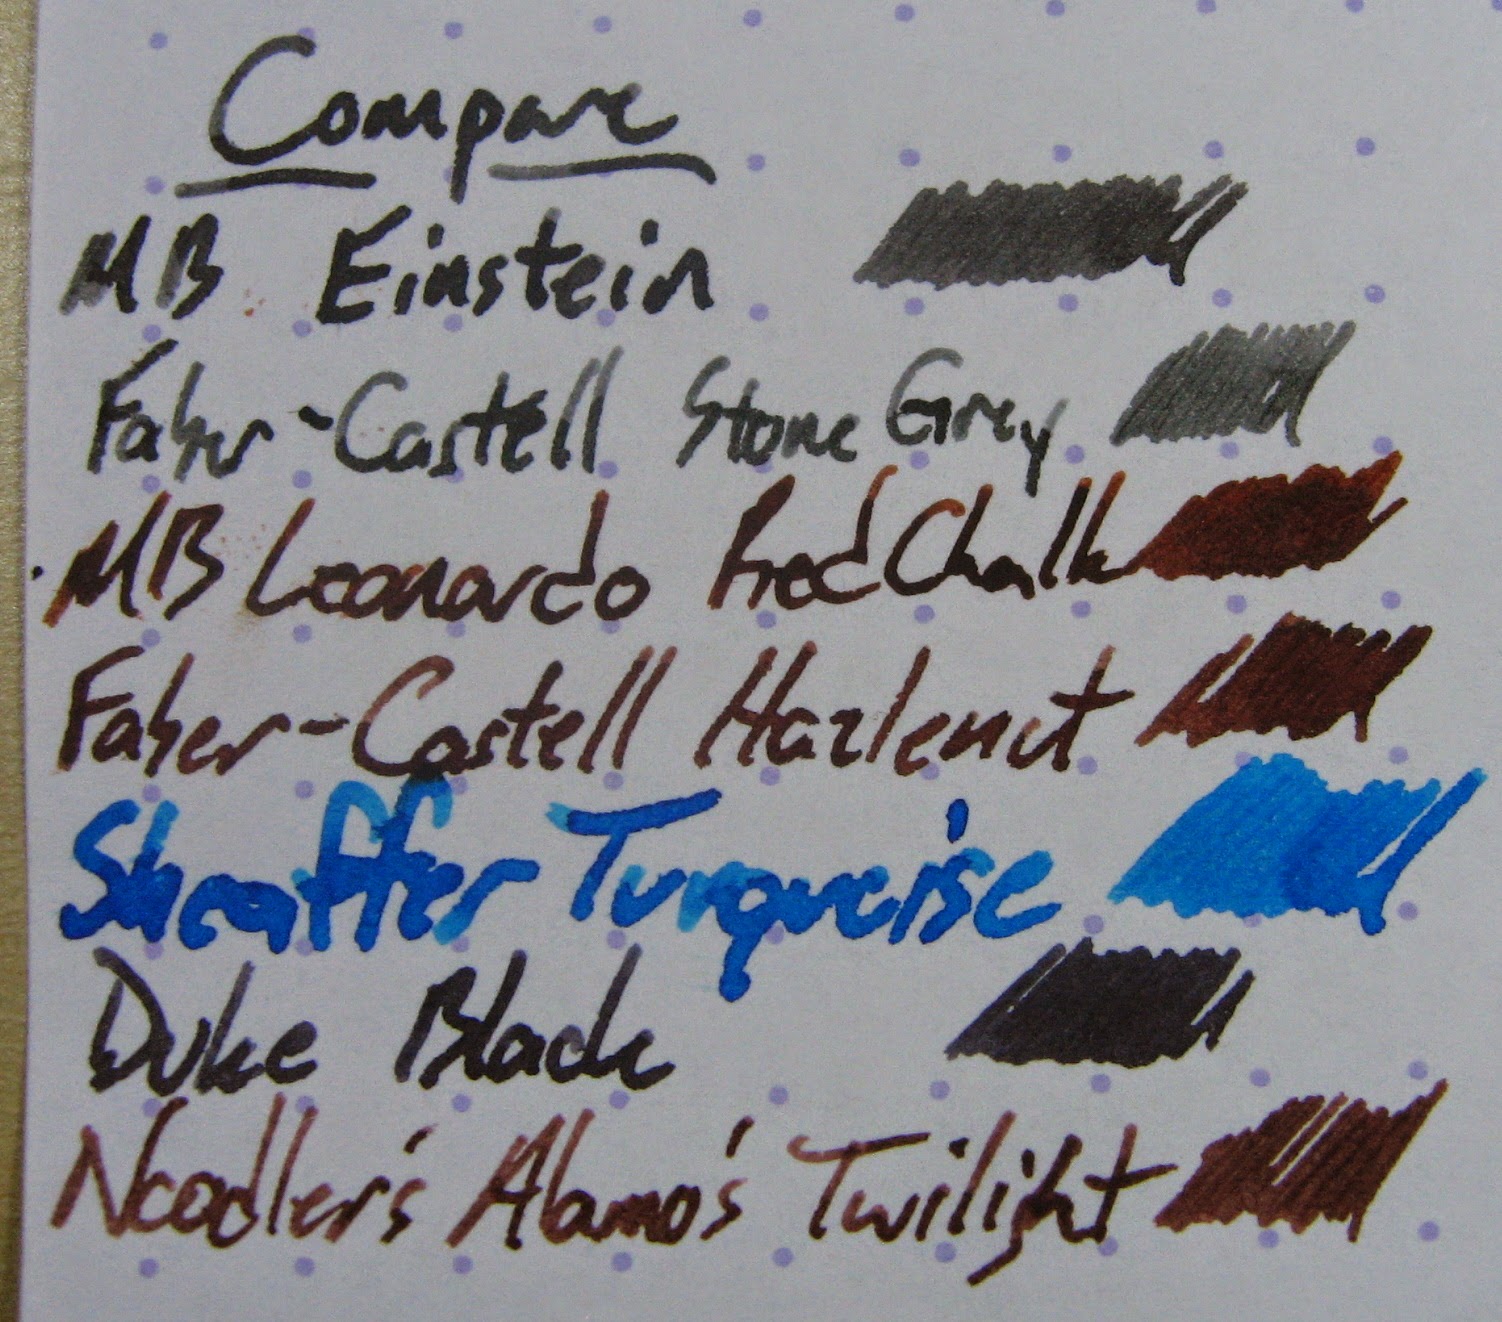 Compare
MB Einstein
Faber-Castell Stone Grey
MB Leonardo Red Chalk
Faber-Castell Hazlenut
Sheaffer Turqueise
Duke Black
Noodler's Alamo's Twilight